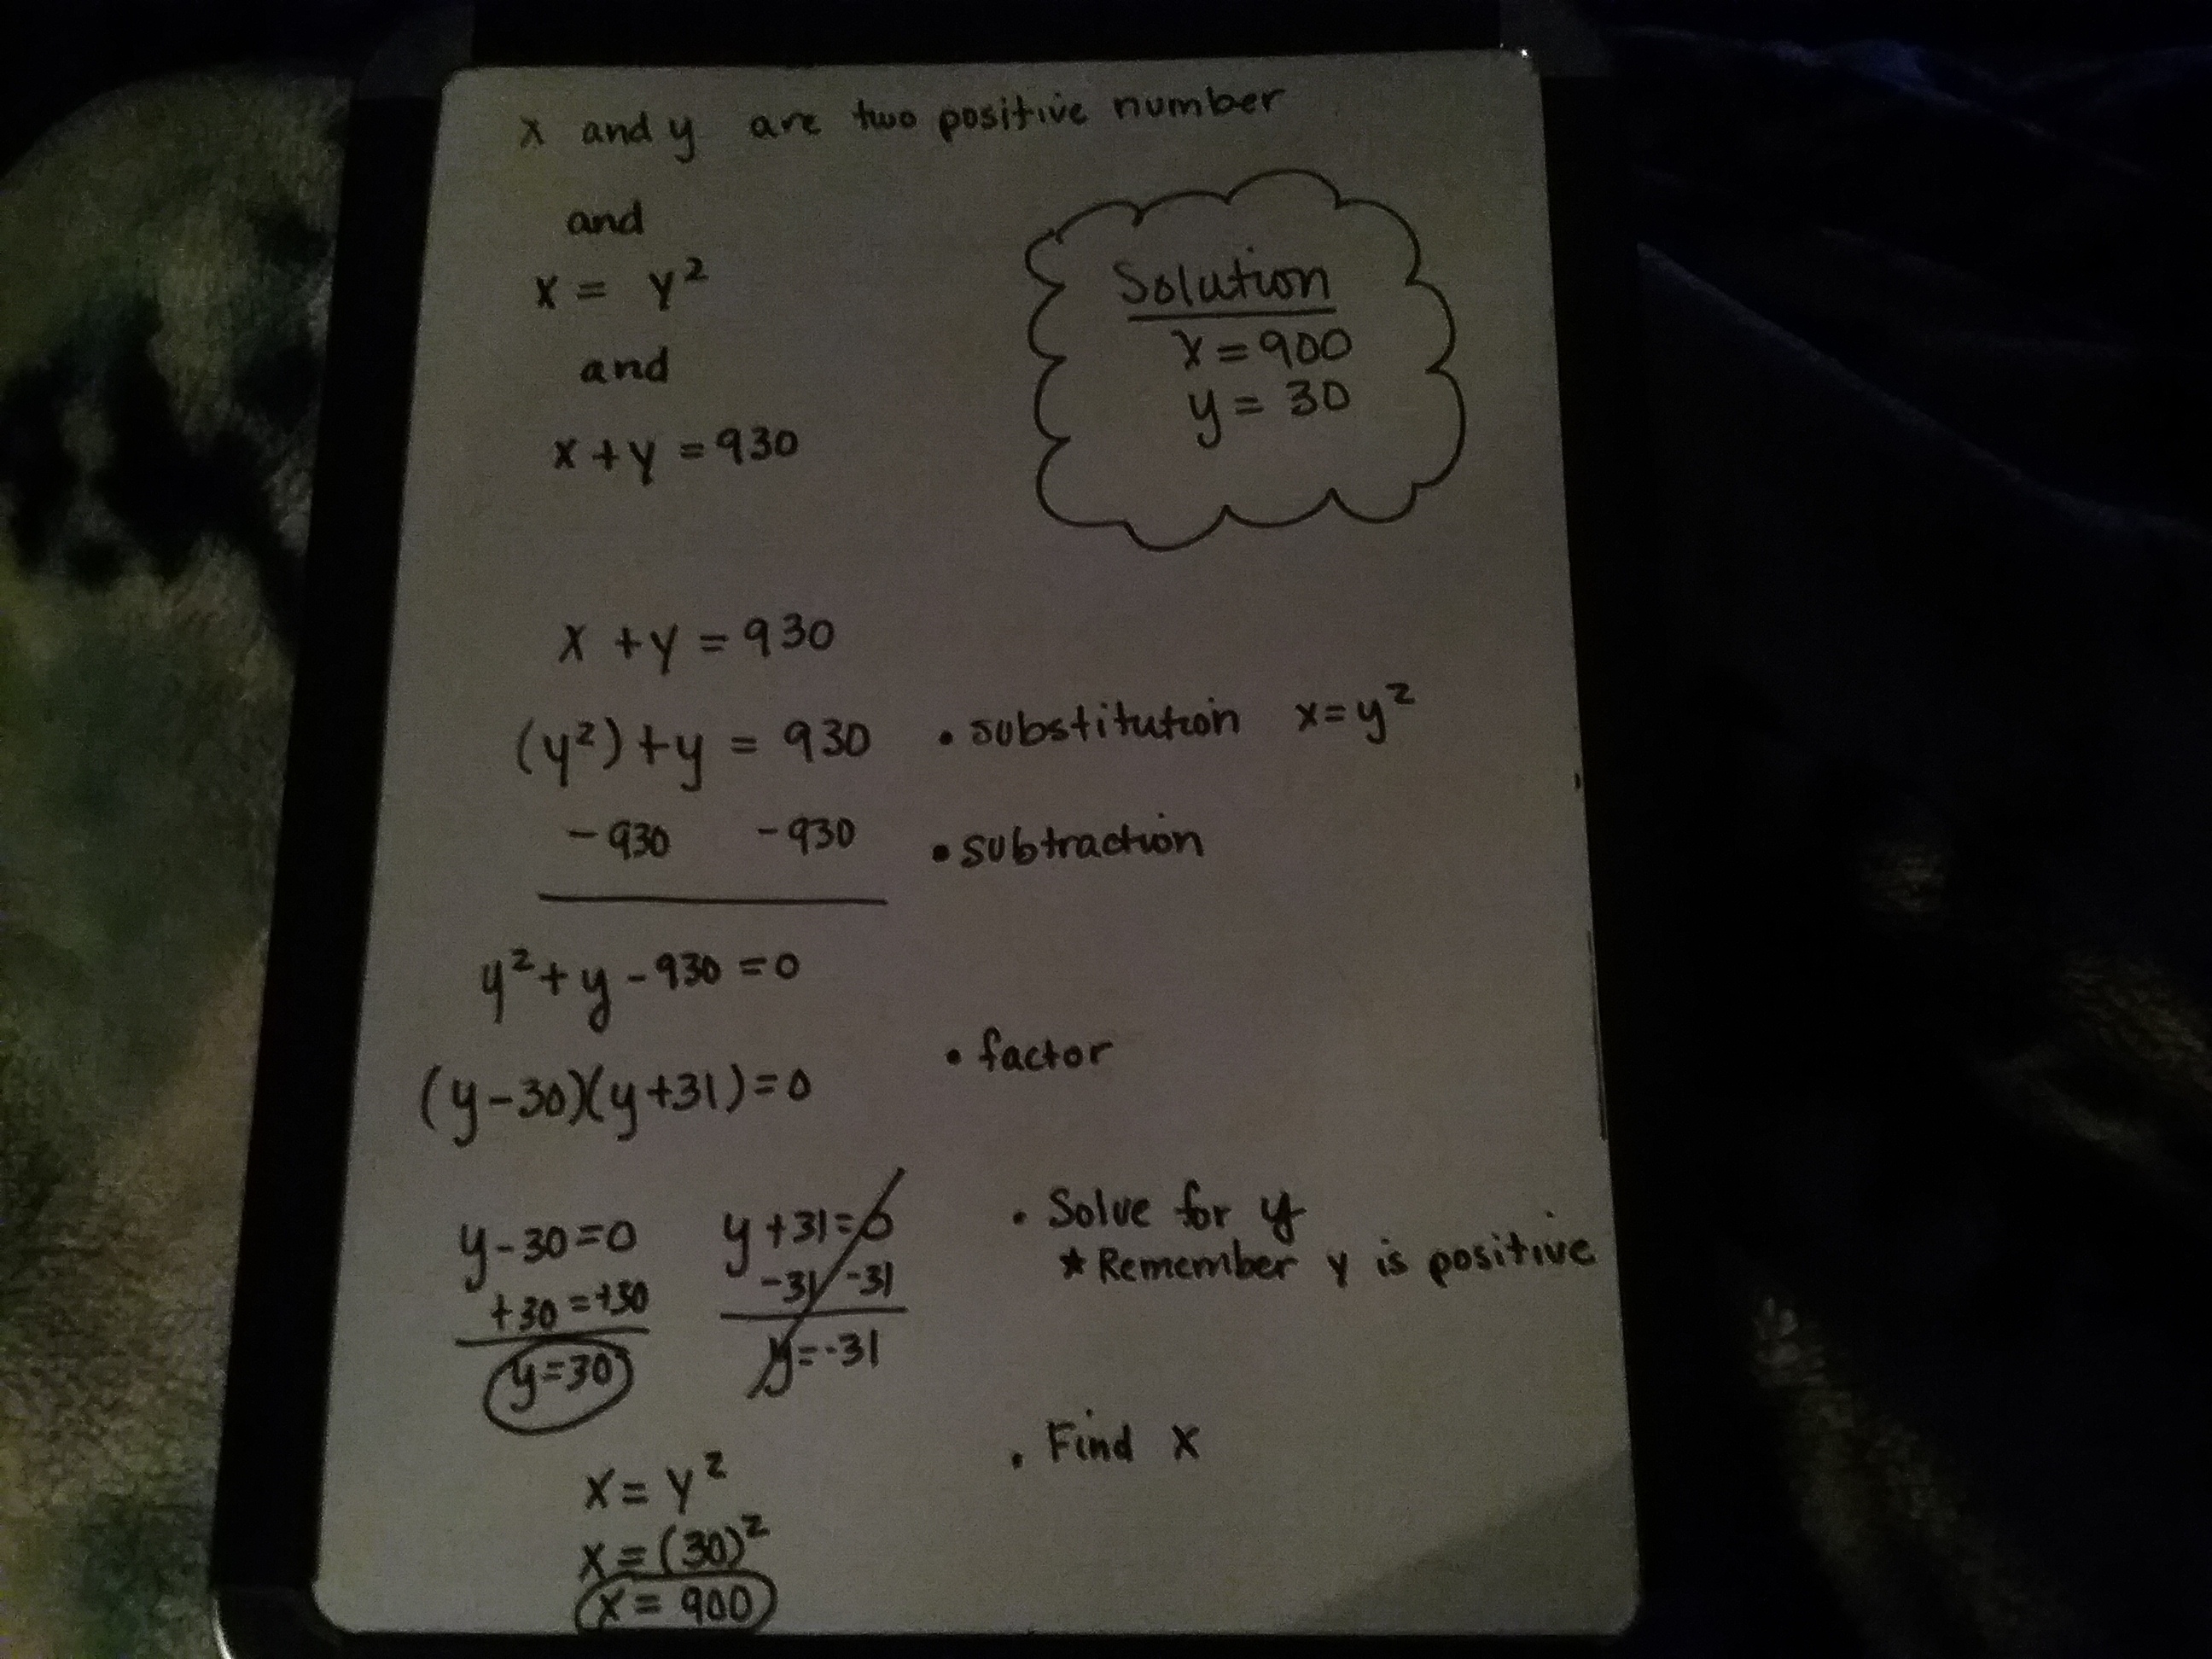 x and y are two positive number
and
x = y²
and
x + y = 930
Solution
x = 900
y = 30
x + y = 930
(y²) + y = 930 • substitution x = y²
-930 -930 • subtraction
y² + y - 930 = 0
• factor
(y-30)(y+31)=0
y-30=0 y+31=0 • Solve for y
+30=+30 -31 -31 * Remember y is positive
y=30 y=-31
• Find x
x = y²
x = (30)²
x = 900